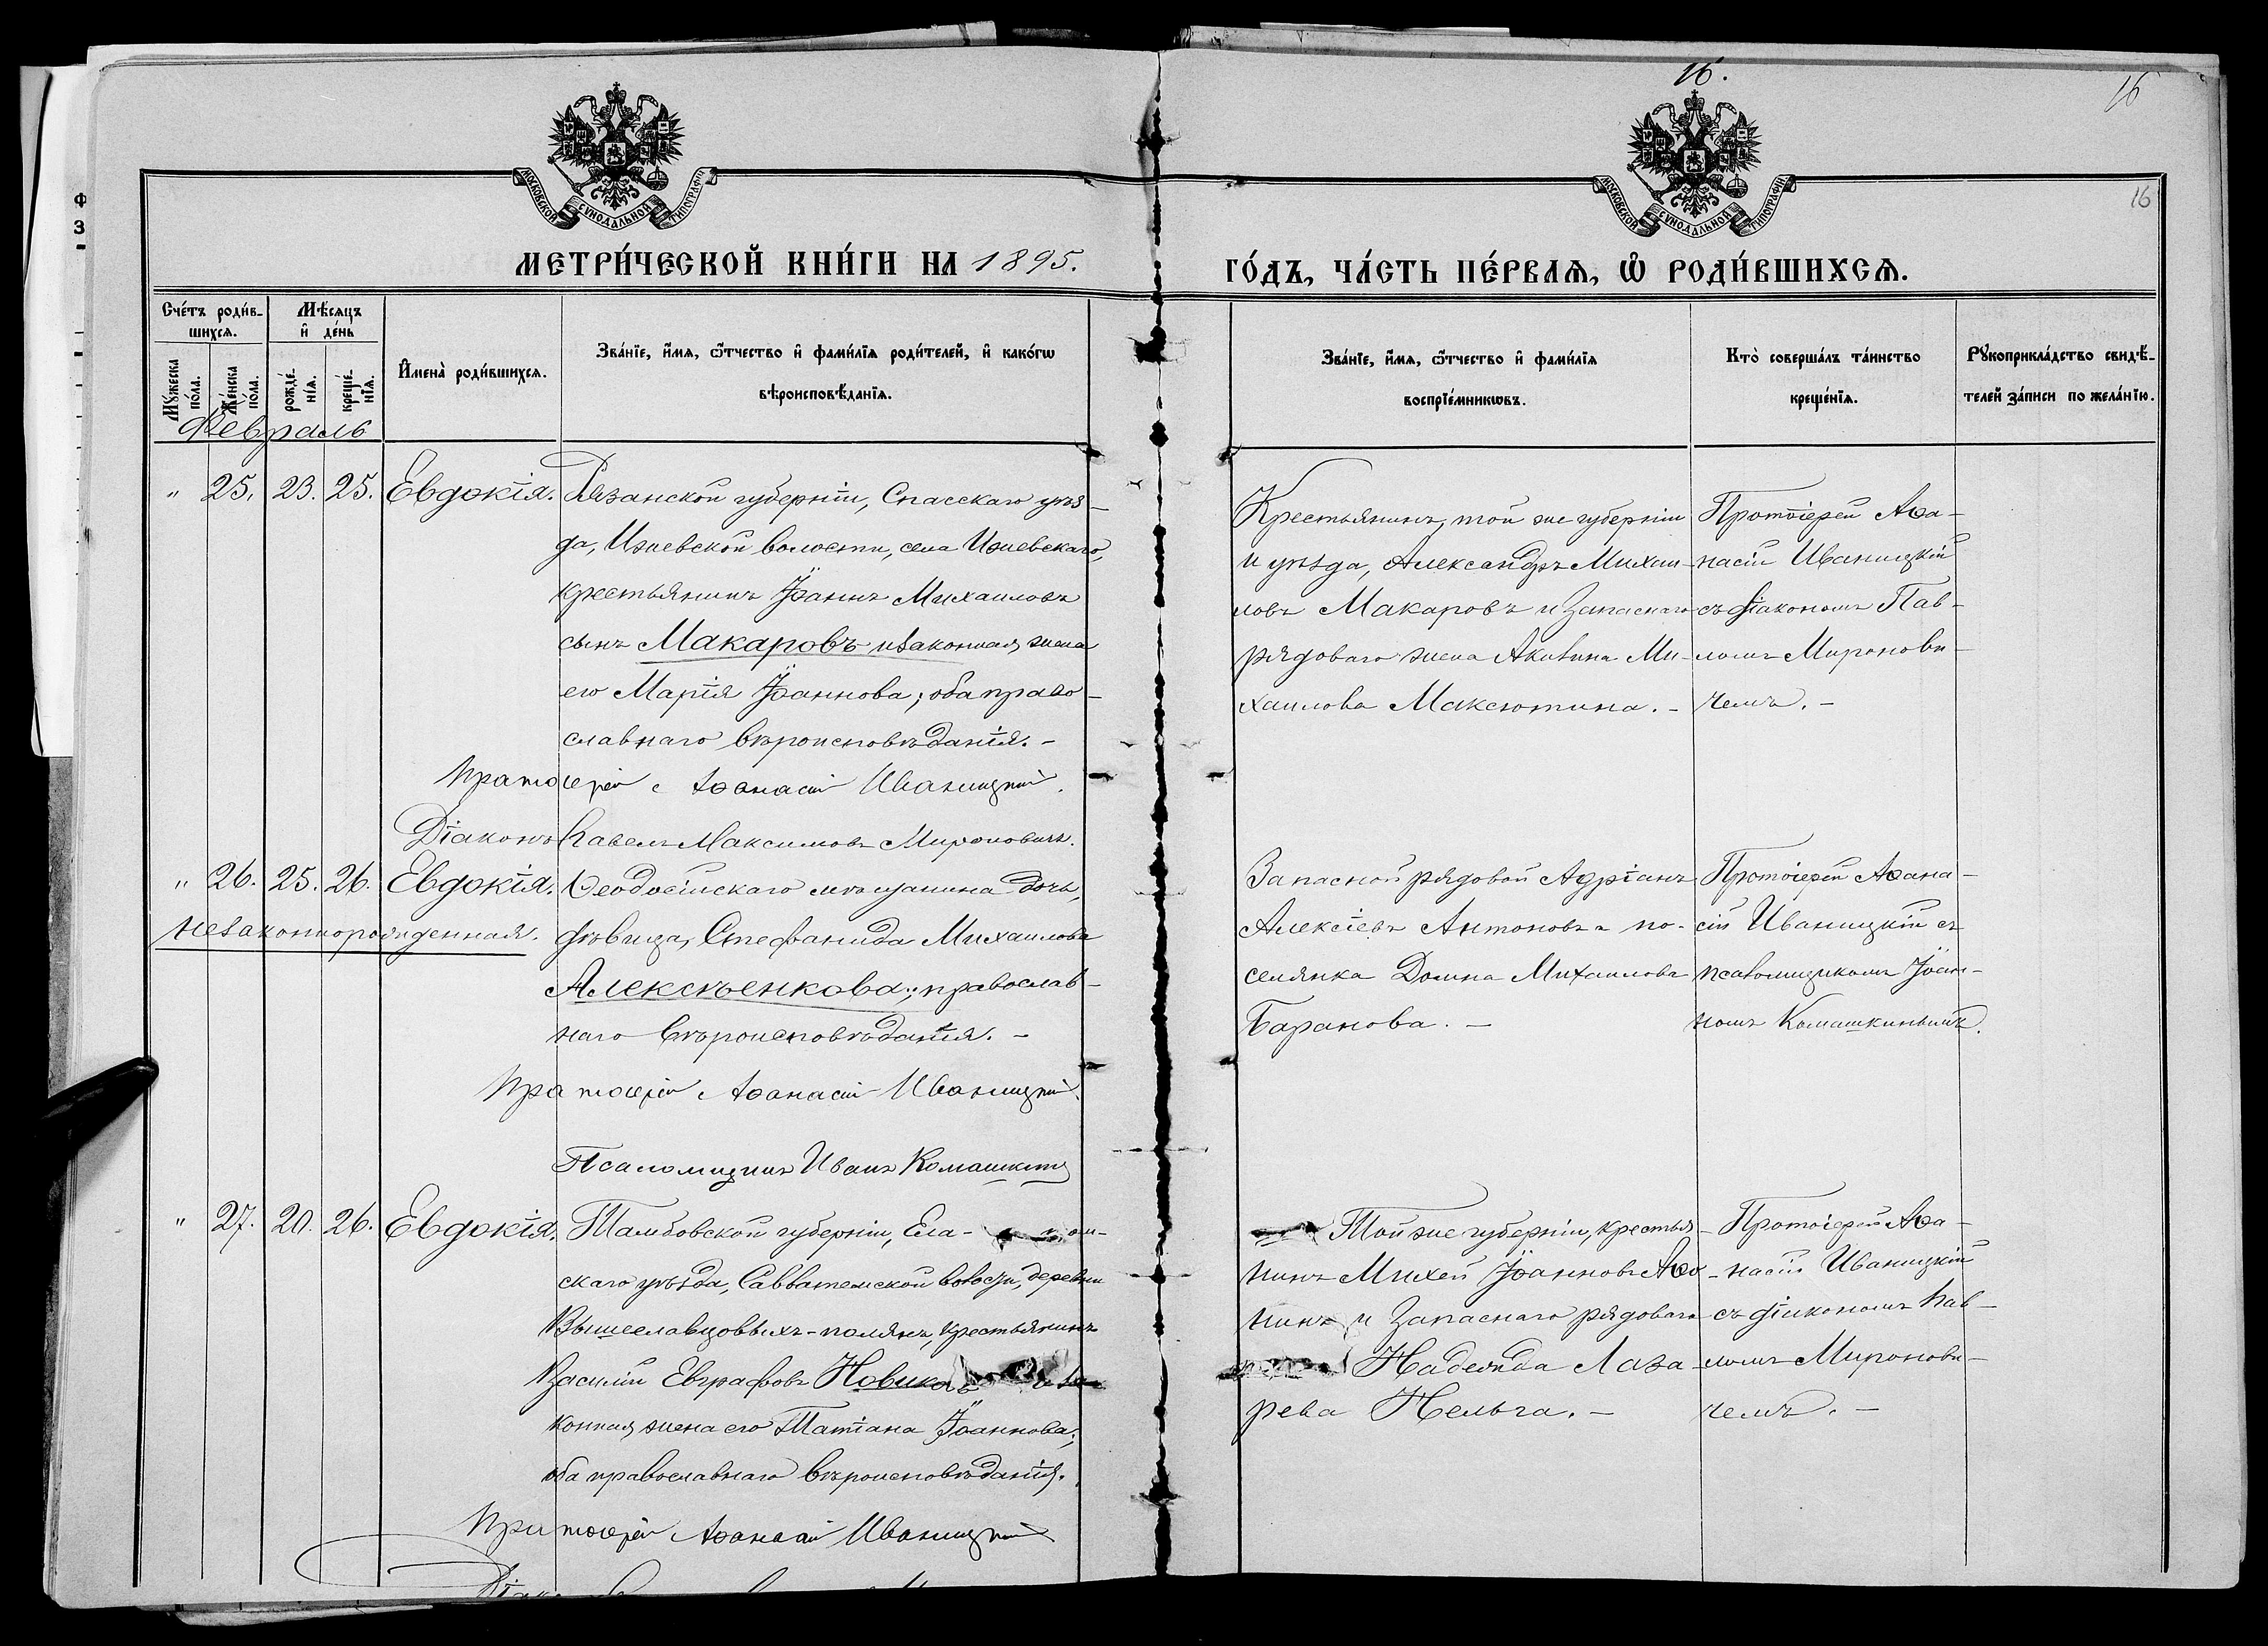 16.
16
16
МОСКОВСКОЙ СѴНОДАЛЬНОЙ ТИПОГРАФІИ
МОСКОВСКОЙ СѴНОДАЛЬНОЙ ТИПОГРАФІИ
МЕТРИ́ЧЕСКОЙ КНИ́ГИ НА 1895.
ГО́ДЪ, ЧА́СТЬ ПЕ́РВАѦ, Ѡ҆ РОДИ́ВШИХСѦ.
Сче́тъ роди́в-
шихсѧ.
Мѣ́сѧцъ
и҆ де́нь
Мꙋ́жеска
по́ла.
Же́нска
по́ла.
рожде́-
нїѧ.
креще́-
нїѧ.
И҆мена̀ роди́вшихсѧ.
Зва́нїе, и҆́мѧ, ѻ҆́тчество и҆ фами́лїѧ роди́телей, и҆ како́гѡ
вѣроисповѣ́данїѧ.
Зва́нїе, и҆́мѧ, ѻ҆́тчество и҆ фами́лїѧ
воспрїе́мникѡвъ.
Кто̀ соверша́лъ та́инство
креще́нїѧ.
Рꙋкоприкла́дство свидѣ́-
телей за́писи по жела́нїю.
Февраль
" 25. 23. 25. Евдокія.
Рязанской губерніи, Спасскаго уѣз-
да, Ижевской волости, села Ижевскаго,
крестьянинъ Іоаннъ Михаиловъ
сынъ Макаровъ и законная жена
его Марія Іоаннова; оба право-
славнаго вѣроисповѣданія. -
Протоіерей Аѳанасій Иваницкій.
Діаконъ Павелъ Максимовъ Мироновичъ.
Крестьянинъ, той же губерніи
и уѣзда, Александръ Михаи-
ловъ Макаровъ и Запаснаго
рядоваго жена Акилина Ми-
хаилова Максютина. -
Протоіерей Аѳа-
насій Иваницкій
съ діакономъ Пав-
ломъ Миронови-
чемъ. -
" 26. 25. 26. Евдокія.
незаконнорожденная.
Ѳеодосійскаго мѣщанина дочь,
дѣвица, Стефанида Михаилова
Алексѣенкова; православ-
наго вѣроисповѣданія. -
Протоіерей Аѳанасій Иваницкій.
Псаломщикъ Иванъ Комашкинъ
Запасной рядовой Адріанъ
Алексіевъ Антоновъ и по-
селянка Домна Михаилова
Баранова. -
Протоіерей Аѳана-
сій Иваницкій съ
псаломщикомъ Іоан-
номъ Комашкинымъ.
" 27. 20. 26. Евдокія.
Тамбовской губерніи, Ела-
скаго уѣзда, Савватемской волости, деревни
Вышеславцовыхъ-полянъ, крестьянинъ
Василій Евграфовъ Новиковъ и за-
конная жена его Татіана Іоаннова;
оба православнаго вѣроисповѣданія.
Протоіерей Аѳанасій Иваницкій
Той же губерніи, крестья-
нинъ Михей Іоанновъ Аѳо-
нинъ и Запаснаго рядоваго
Надежда Лаза-
рева Нельга. -
Протоіерей Аѳа-
насій Иваницкій
съ діакономъ Пав-
ломъ Миронови-
чемъ. -